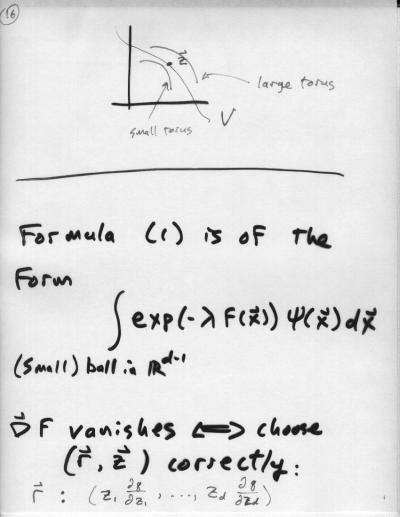 16
large torus
small torus
V
Formula (1) is of the
Form
∫ exp(-λ F(x⃗)) ψ(x⃗) dx⃗
(small) ball in ℝ^{d-1}
∇⃗ F vanishes ⟺ choose
(r⃗, z⃗) correctly:
r⃗ : (z₁ ∂g/∂z₁, ..., z_d ∂g/∂z_d)